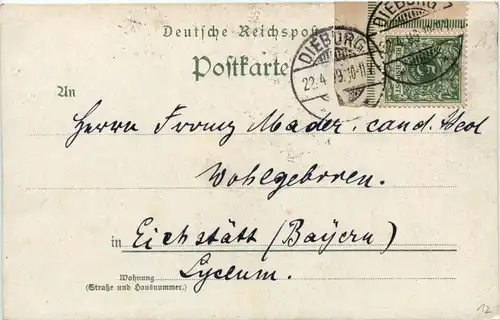 Deutsche Reichspost
Postkarte
DIEBURG
22.4
DIEBURG
An
Herrn Franz Mader. cand. theol
Wohlgeboren.
in Eichstätt (Bayern)
Lyceum.
Wohnung
(Straße und Hausnummer.)
12